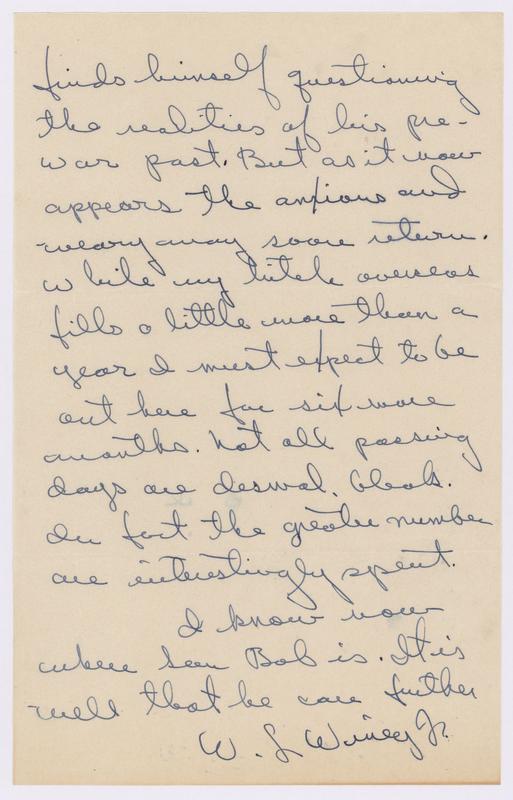 finds himself questioning
the realities of his pre-
war past. But as it now
appears the anxious and
weary may soon return.
While my hitch overseas
fills a little more than a
year I must expect to be
out here for six more
months. Not all passing
days are dismal, bleak.
In fact the greater number
are interestingly spent.
I know now
where Bob is. It is
well that he can further
W. L. Winey Jr.